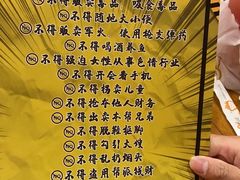 不得贩卖毒品 吸食毒品
NO 不得随地大小便
NO 不得贩卖军火 使用枪支弹药
NO 不得喝酒养鱼
NO 不得强迫女性从事色情行业
NO 不得开会看手机
NO 不得拐卖儿童
NO 不得抢夺他人财务
NO 不得出卖本帮兄弟
NO 不得脱鞋抠脚
NO 不得勾引大嫂
NO 不得乱扔烟头
NO 不得盗用帮派钱财